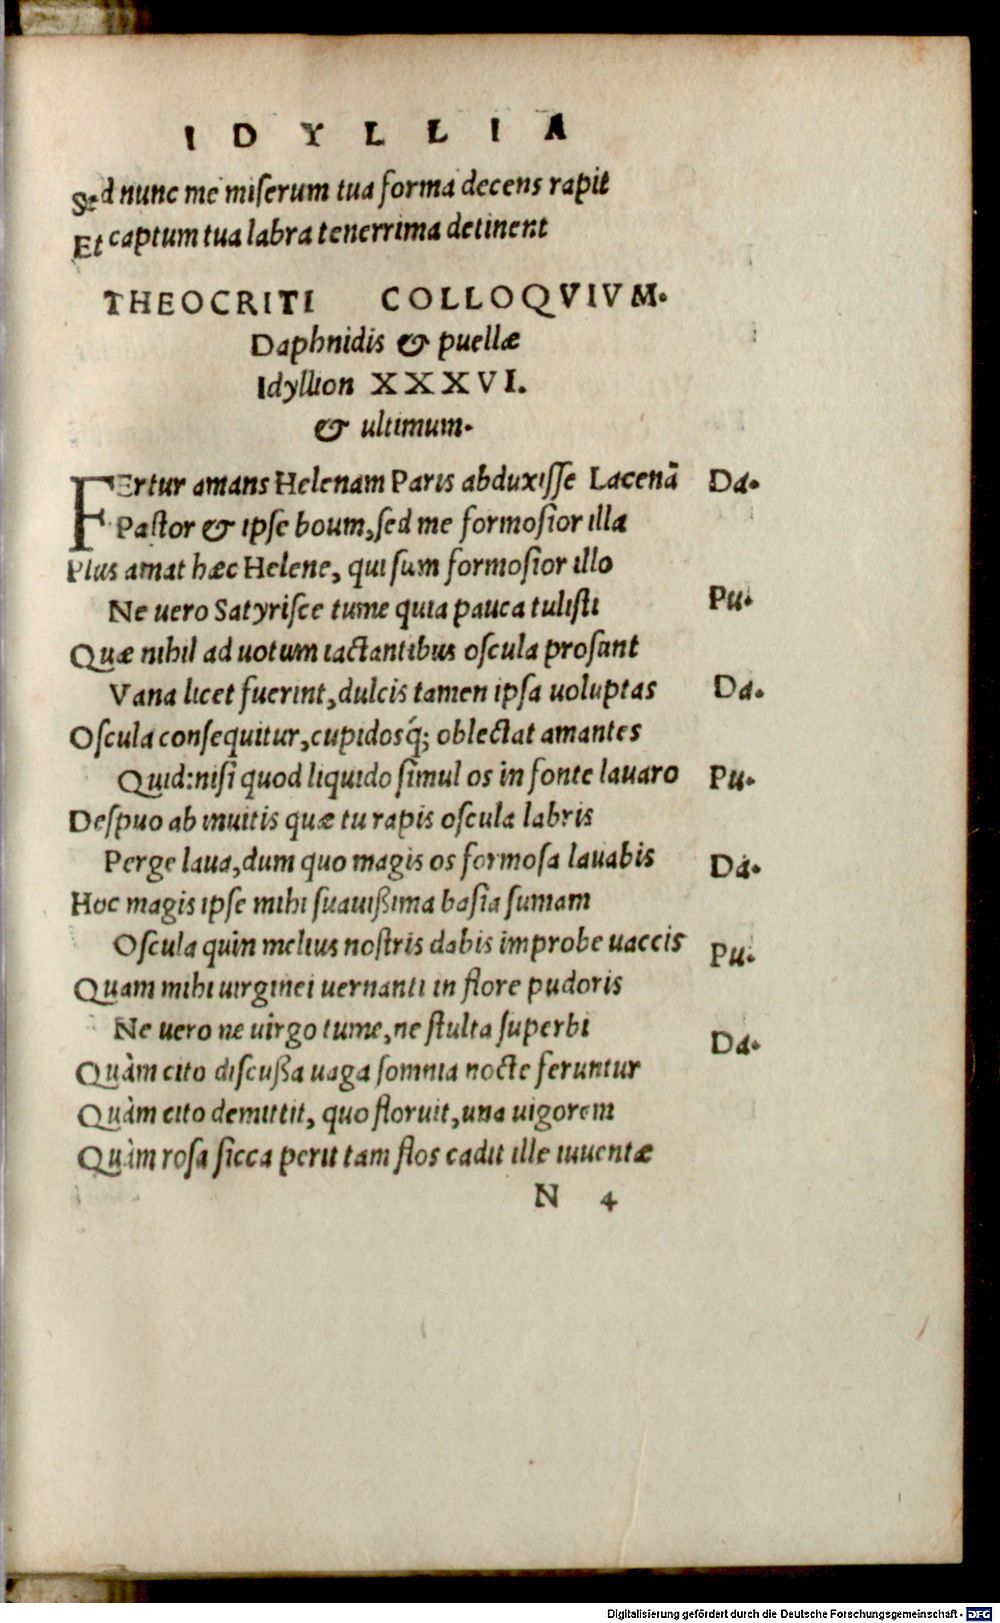 IDYLLIA
Sed nunc me miserum tua forma decens rapit
Et captum tua labra tenerrima detinent
THEOCRITI COLLOQVIVM.
Daphnidis & puellæ
Idyllion XXXVI.
& ultimum.
FErtur amans Helenam Paris abduxisse Lacenā Da.
Pastor & ipse boum, sed me formosior illa
Plus amat hæc Helene, qui sum formosior illo
Ne uero Satyrisce tume quia pauca tulisti Pu.
Quæ nihil ad uotum iactantibus oscula prosunt
Vana licet fuerint, dulcis tamen ipsa uoluptas Da.
Oscula consequitur, cupidosq́; oblectat amantes
Quid: nisi quod liquido simul os in fonte lauaro Pu.
Despuo ab inuitis quæ tu rapis oscula labris
Perge laua, dum quo magis os formosa lauabis Da.
Hoc magis ipse mihi suauißima basia sumam
Oscula quin melius nostris dabis improbe uaccis Pu.
Quam mihi uirginei uernanti in flore pudoris
Ne uero ne uirgo tume, ne stulta superbi Da.
Quàm cito discußa uaga somnia nocte feruntur
Quàm cito demittit, quo floruit, uua uigorem
Quàm rosa sicca perit tam flos cadit ille iuuentæ
N 4
Digitalisierung gefördert durch die Deutsche Forschungsgemeinschaft - DFG